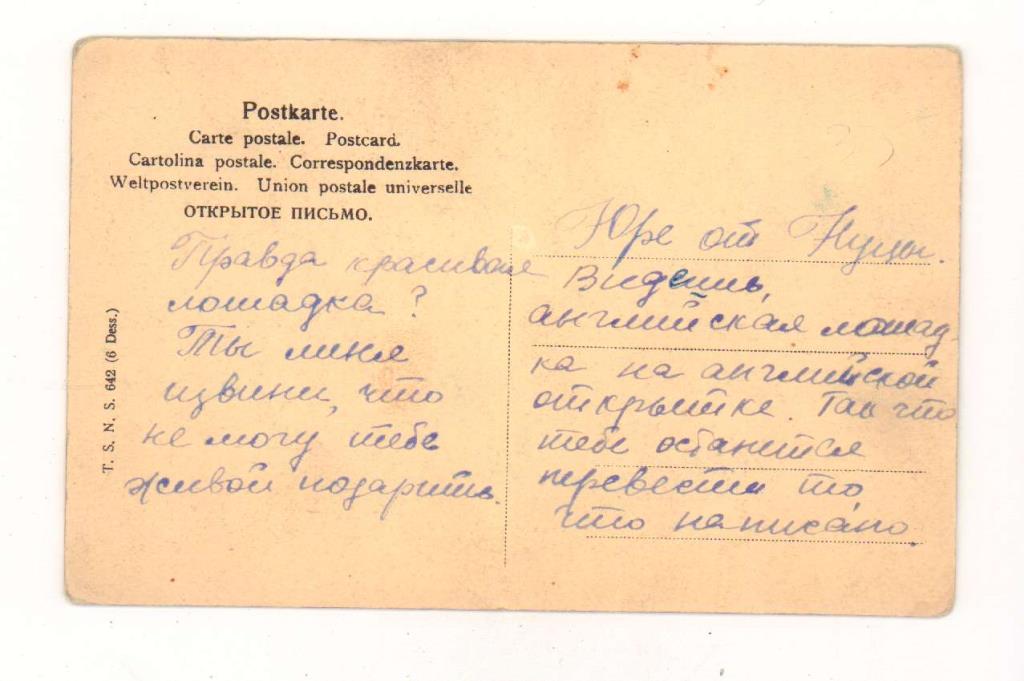 Postkarte.
Carte postale. Postcard.
Cartolina postale. Correspondenzkarte.
Weltpostverein. Union postale universelle
ОТКРЫТОЕ ПИСЬМО.
Правда красивая
лошадка?
Ты меня
извини, что
не могу тебе
живой подарить.
T. S. N. S. 642 (6 Dess.)
Юре от Нуцы.
Видешь,
английская лошад-
ка на английской
открытке. Так что
тебе останится
перевести то,
что написано.